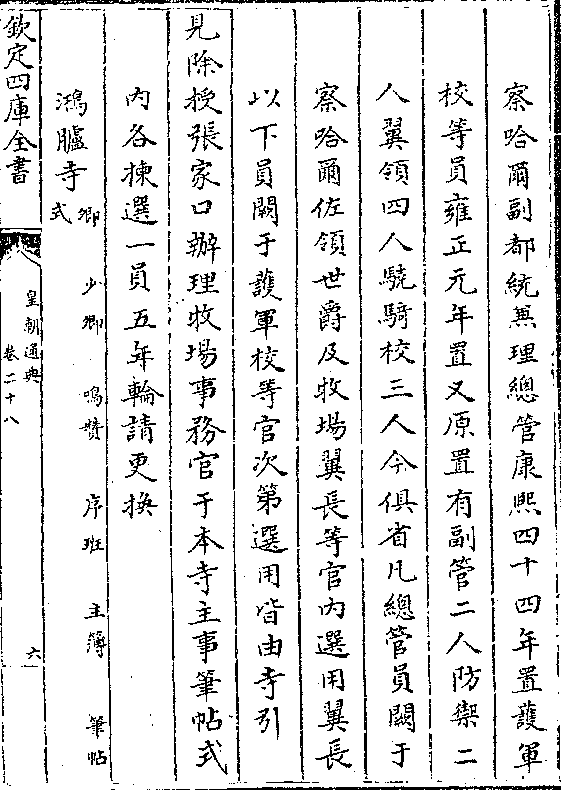 察哈爾副都統兼理總管康熙四十四年置護軍
校等員雍正元年置又原置有副管二人防禦二
人翼領四人驍騎校三人今俱省凡總管員闕于
察哈爾佐領世爵及牧場翼長等官内選用翼長
以下員闕于護軍校等官次第選用皆由寺引
見除授張家口辦理牧場事務官于本寺主事筆帖式
内各揀選一員五年輪請更換
鴻臚寺卿 少卿 鳴贊 序班 主簿 筆帖
式
欽定四庫全書
皇朝通典
卷二十八
六